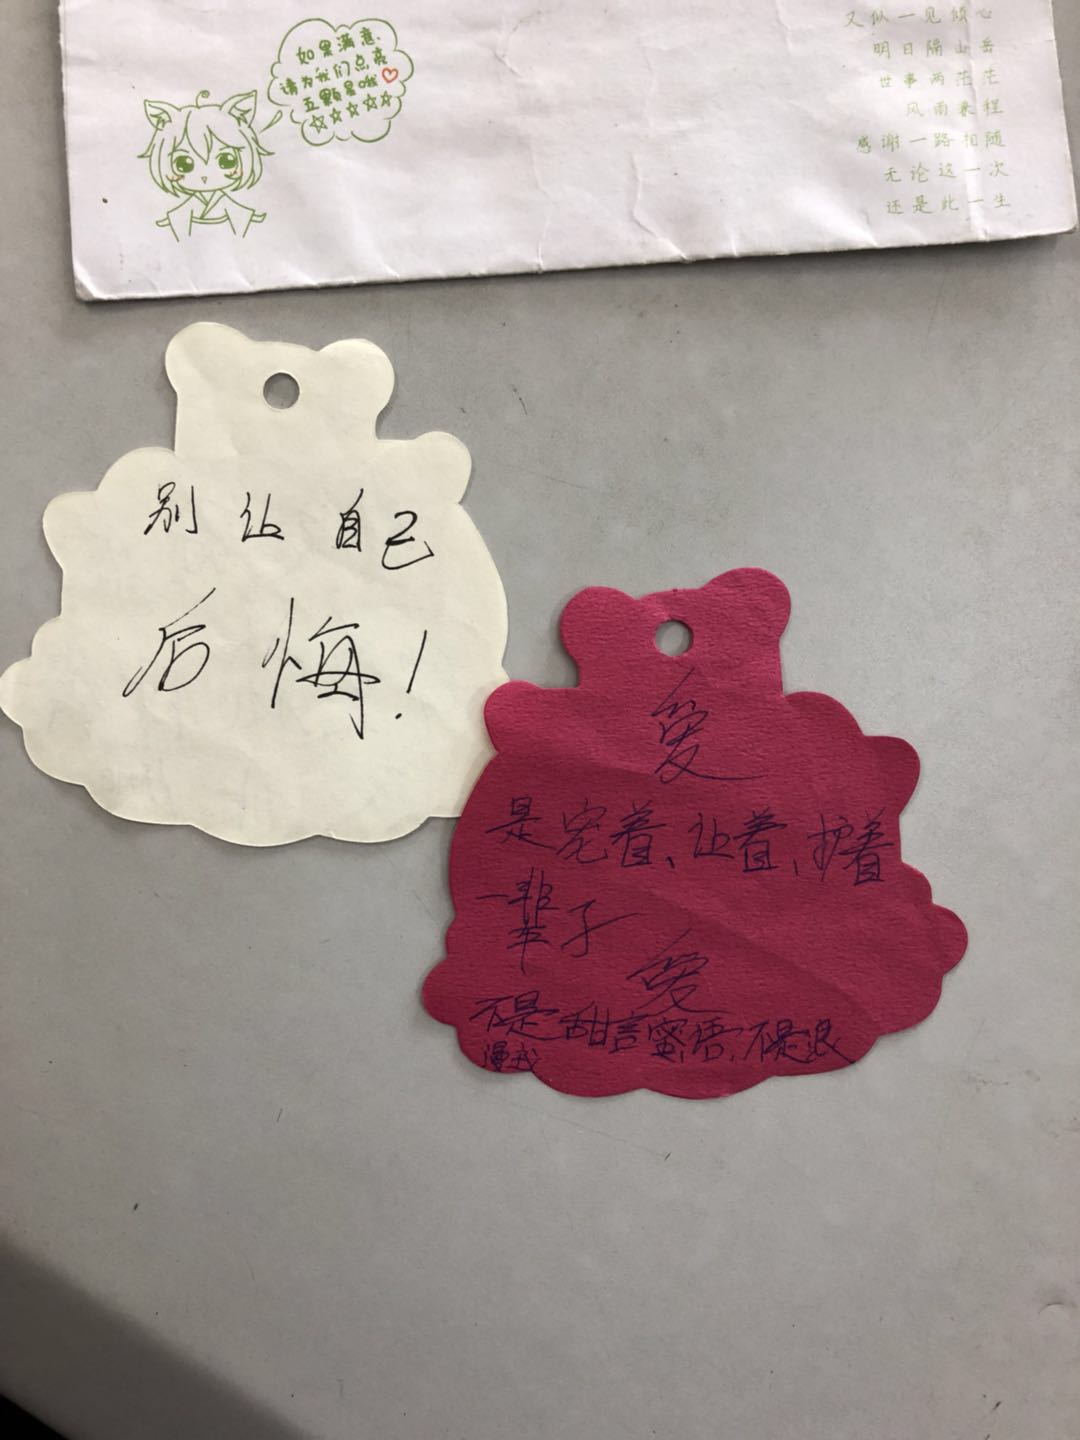 如果满意，
请为我们点亮
五颗星哦
又似一见倾心
明日隔山岳
世事两茫茫
风雨兼程
感谢一路相随
无论这一次
还是此一生
别让自己
后悔！
爱
是宠着、让着、护着
一辈子
爱
不是甜言蜜语、不是浪
漫